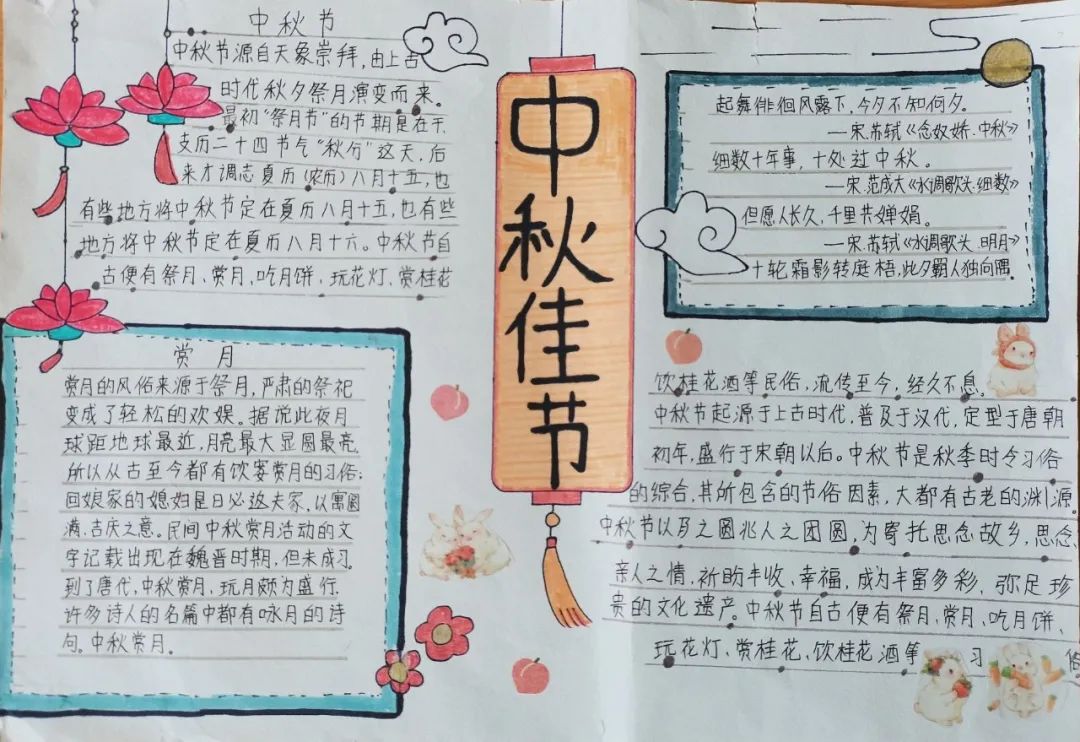 中秋节
中秋节源自天象崇拜,由上古
时代秋夕祭月演变而来。
最初“祭月节”的节期是在干
支历二十四节气“秋分”这天,后
来才调志夏历(农历)八月十五,也
有些地方将中秋节定在夏历八月十五,也有些
地方将中秋节定在夏历八月十六。中秋节自
古便有祭月、赏月、吃月饼、玩花灯、赏桂花
赏月
赏月的风俗来源于祭月,严肃的祭祀
变成了轻松的欢娱。据说此夜月
球距地球最近,月亮最大显圆最亮,
所以从古至今都有饮宴赏月的习俗;
回娘家的媳妇是日必返夫家,以寓圆
满、吉庆之意。民间中秋赏月活动的文
字记载出现在魏晋时期,但未成习。
到了唐代,中秋赏月、玩月颇为盛行,
许多诗人的名篇中都有咏月的诗
句。中秋赏月。
中秋佳节
起舞徘徊风露下,今夕不知何夕。
—宋.苏轼《念奴娇.中秋》
细数十年事,十处过中秋。
—宋.范成大《水调歌头.细数》
但愿人长久,千里共婵娟。
—宋.苏轼《水调歌头.明月》
十轮霜影转庭梧,此夕羁人独向隅。
饮桂花酒等民俗,流传至今,经久不息。
中秋节起源于上古时代,普及于汉代,定型于唐朝
初年,盛行于宋朝以后。中秋节是秋季时令习俗
的综合,其所包含的节俗因素,大都有古老的渊源。
中秋节以月之圆兆人之团圆,为寄托思念故乡,思念
亲人之情,祈盼丰收、幸福,成为丰富多彩、弥足珍
贵的文化遗产。中秋节自古便有祭月、赏月、吃月饼、
玩花灯、赏桂花、饮桂花酒等 习 俗